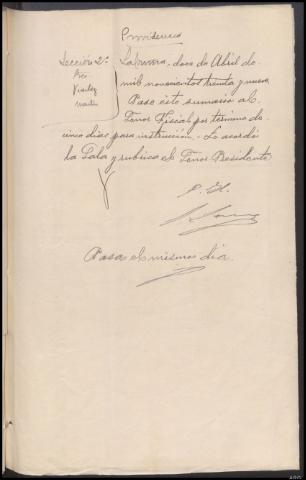 Providencia
Sección 2ª
Sres.
La Coruña, doce de Abril de
mil novecientos treinta y nueve
Pase este sumario al
Señor Fiscal por término de
cinco dias para instrucción. Lo acordó
la Sala y rubrica el Señor Presidente
Pasa el mismo dia.